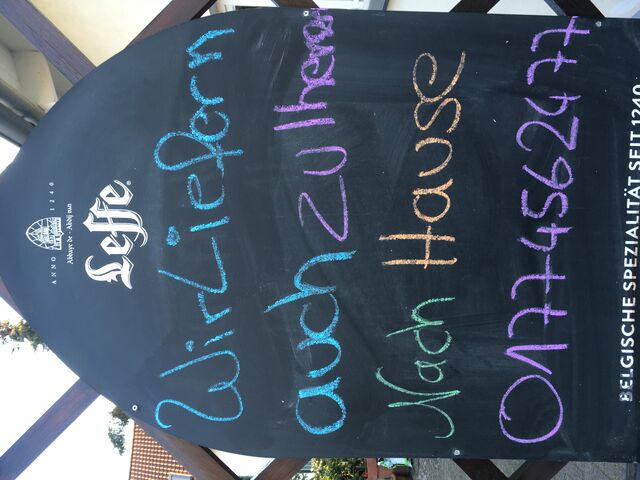 ANNO 1240
Abbaye de - Abdij van
Leffe
Wir Liefern
auch zu Ihnen
Nach Hause
01774562477
BELGISCHE SPEZIALITÄT SEIT 1240